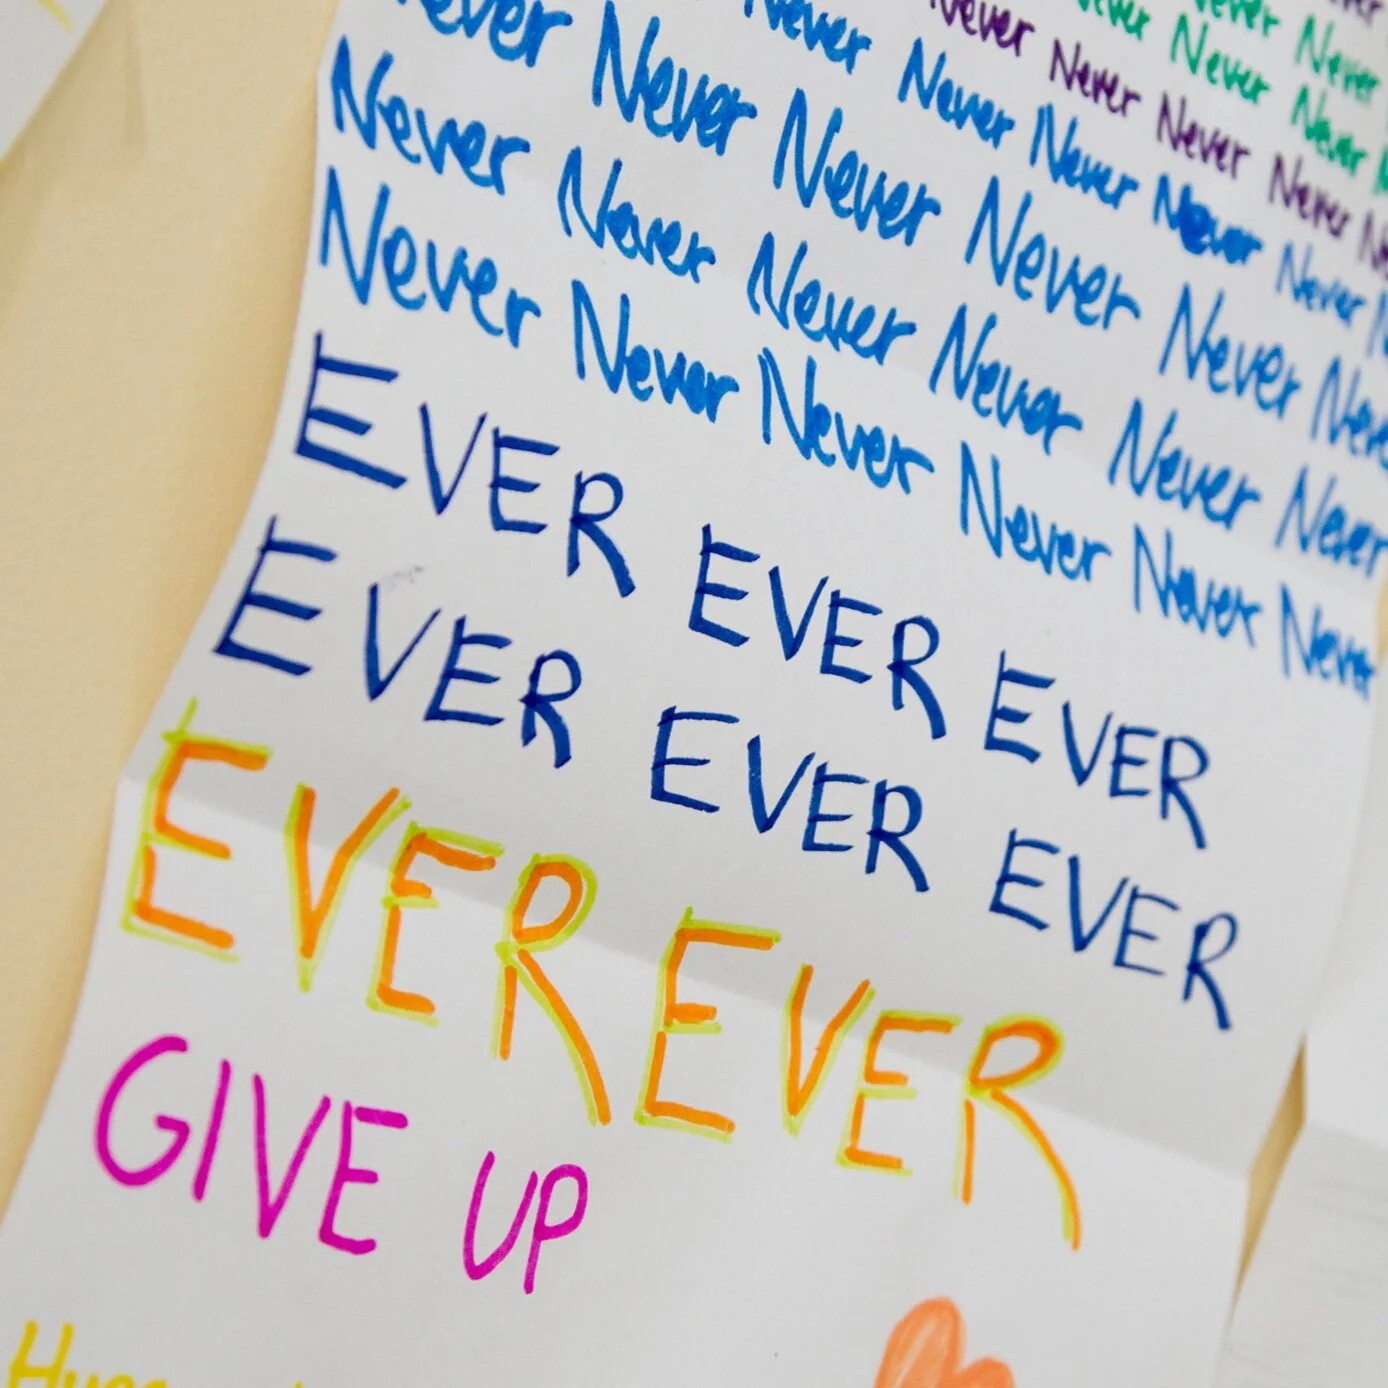 Never Never
Never Never Never
Never Never Never Never
Never Never Never Never Never
Never Never Never Never Never
Never Never Never Never Never Never
Never Never Never Never Never Never
EVER EVER EVER
EVER EVER EVER
EVER EVER
GIVE UP